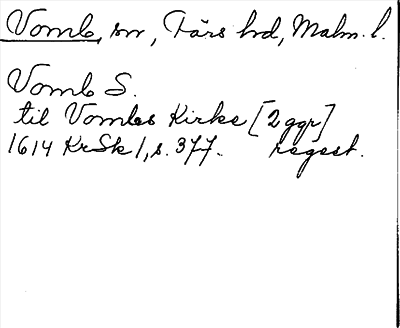 Vomb, sn, Färs hd, Malm. l.
Vomb S.
til Vombs Kirke [2 ggr]
1614 KrSk 1, s. 377. regest.